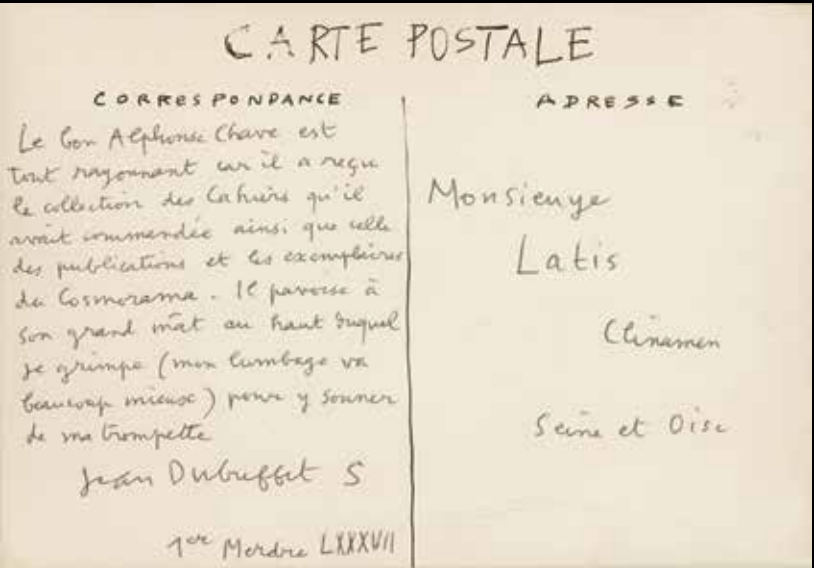 CARTE POSTALE
CORRESPONDANCE
Le bon Alphonse Chave est
tout rayonnant car il a reçu
la collection des Cahiers qu'il
avait commandée ainsi que celle
des publications et les exemplaires
du Cosmorama. Il pavoise à
son grand mât au haut duquel
je grimpe (mon lumbago va
beaucoup mieux) pour y sonner
de ma trompette
Jean Dubuffet S
1er Merdre LXXXVII
ADRESSE
Monsieuye
Latis
Clinamen
Seine et Oise